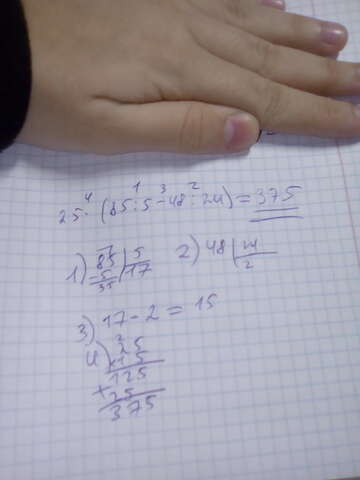 25 ·⁴ (85 :¹ 5 -³ 48 :² 24) = 375
1) 85 | 5
- 5 | 17
35
2) 48 | 24
2
3) 17 - 2 = 15
4) 25
× 15
125
+ 25
375